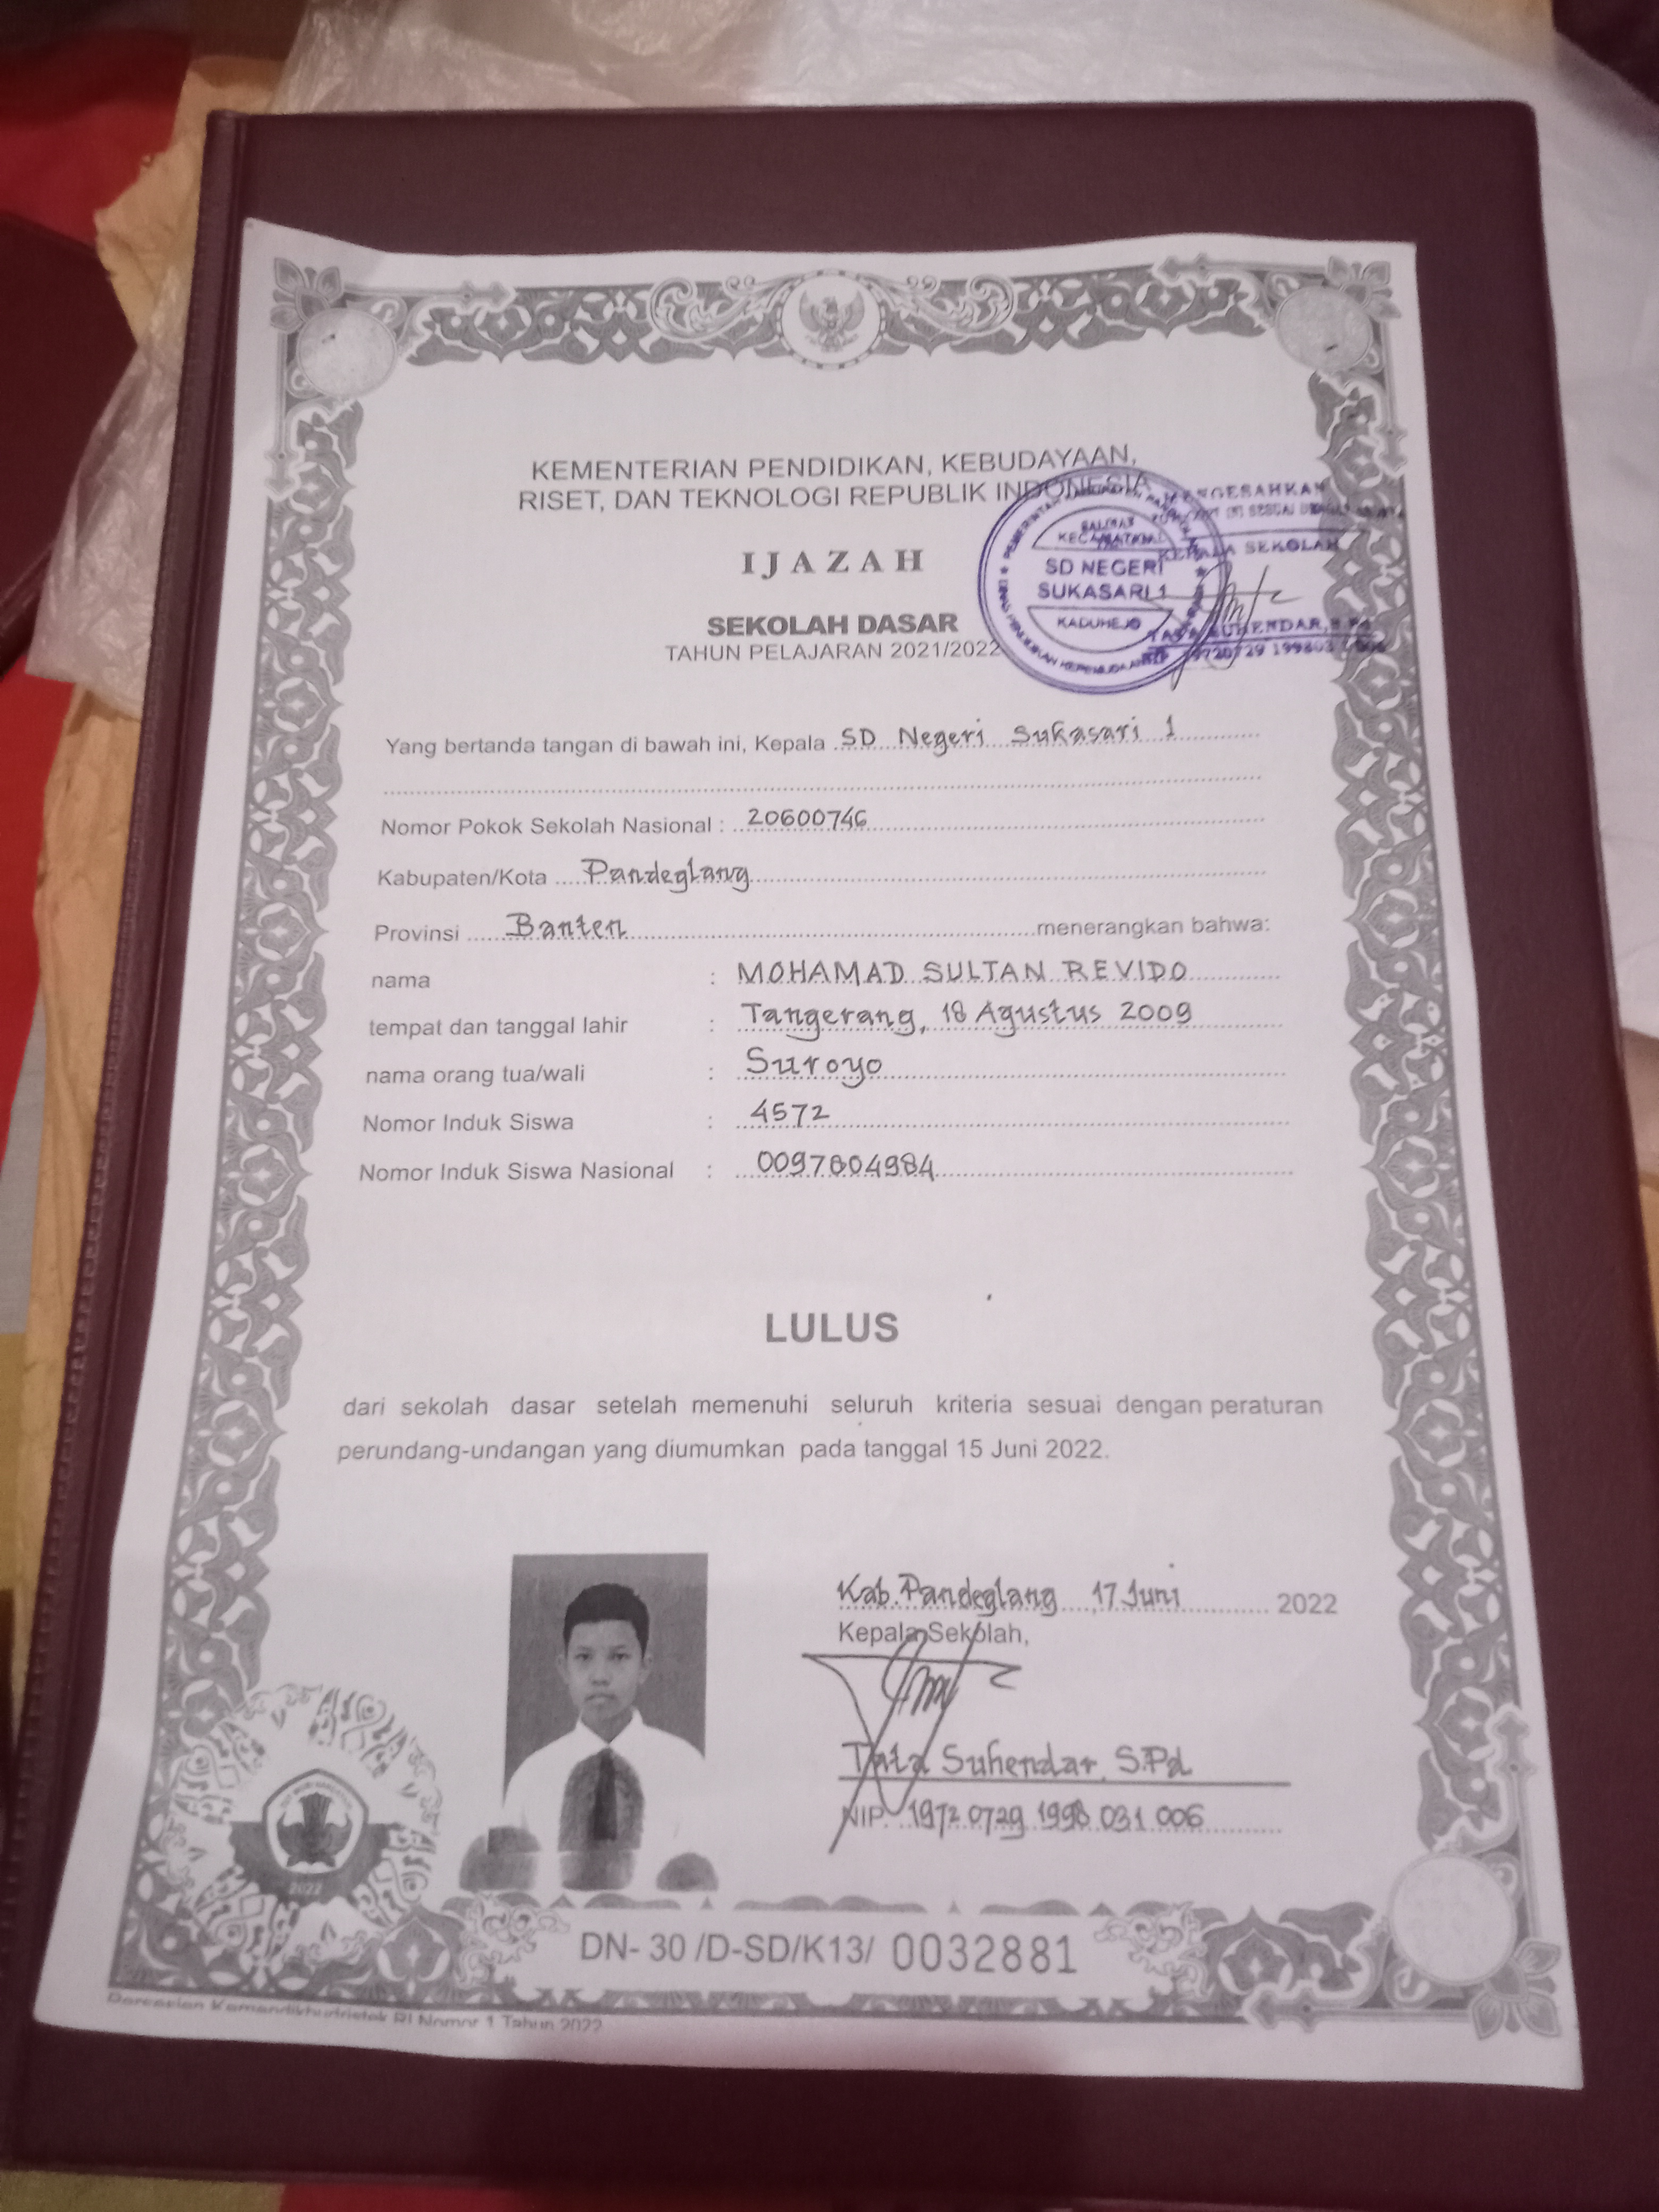 KEMENTERIAN PENDIDIKAN, KEBUDAYAAN,
RISET, DAN TEKNOLOGI REPUBLIK INDONESIA
MENGESAHKAN
SESUAI
KEPALA SEKOLAH
KECAMATAN
SD NEGERI
SUKASARI 1
KADUHEJO
TATA SUHENDAR, S.Pd
IJAZAH
SEKOLAH DASAR
TAHUN PELAJARAN 2021/2022
Yang bertanda tangan di bawah ini, Kepala SD Negeri Sukasari 1
Nomor Pokok Sekolah Nasional : 20600746
Kabupaten/Kota Pandeglang
Provinsi Banten menerangkan bahwa:
nama : MOHAMAD SULTAN REVIDO
tempat dan tanggal lahir : Tangerang, 18 Agustus 2009
nama orang tua/wali : Suroyo
Nomor Induk Siswa : 4572
Nomor Induk Siswa Nasional : 0097804984
LULUS
dari sekolah dasar setelah memenuhi seluruh kriteria sesuai dengan peraturan
perundang-undangan yang diumumkan pada tanggal 15 Juni 2022.
Kab. Pandeglang, 17 Juni 2022
Kepala Sekolah,
Tata Suhendar, S.Pd
NIP. 19720729 1998 031 006
2022
DN- 30 /D-SD/K13/ 0032881
Persesjen Kemendikbudristek RI Nomor 1 Tahun 2022